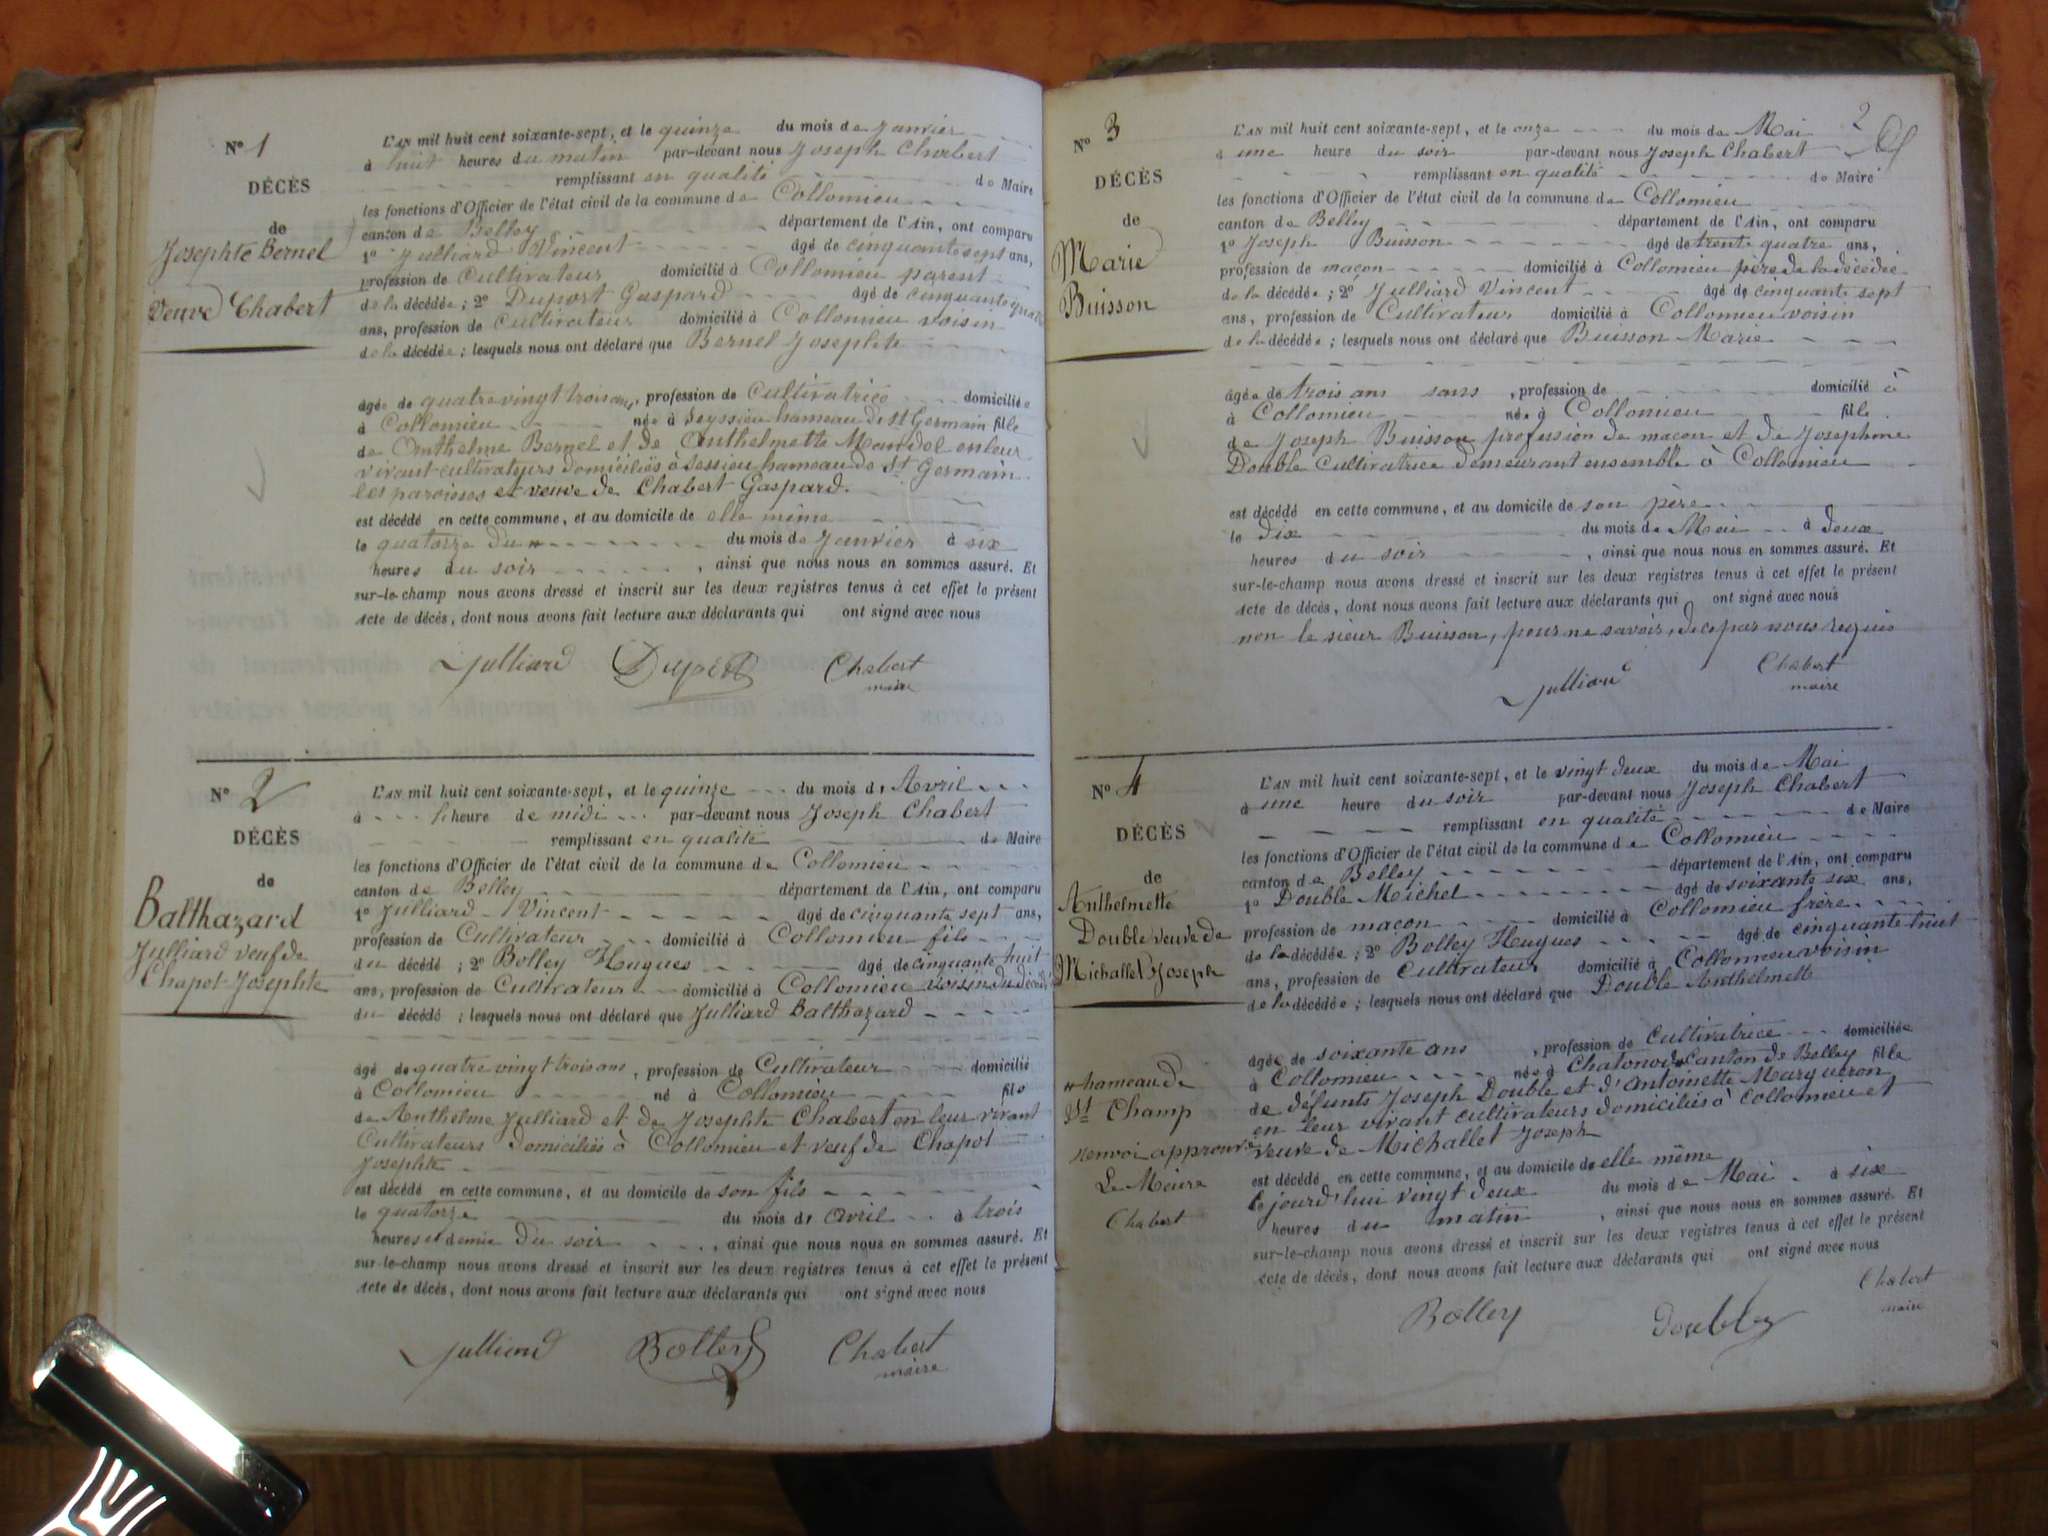 N° 1
DÉCÈS
de
Josephte Bernel
Veuve Chabert
L'AN mil huit cent soixante-sept, et le quinze du mois de Janvier
à huit heures du matin par-devant nous Joseph Chabert
remplissant en qualité de Maire
les fonctions d'Officier de l'état civil de la commune de Collomieu
canton de Belley département de l'Ain, ont comparu
1° Julliard Vincent âgé de cinquante sept ans,
profession de Cultivateur domicilié à Collomieu parent
de la décédée ; 2° Duport Gaspard âgé de cinquante quatre
ans, profession de Cultivateur domicilié à Collomieu voisin
de la décédée ; lesquels nous ont déclaré que Bernel Josephte
âgée de quatre vingt trois ans, profession de Cultivatrice domiciliée
à Collomieu née à Seyssieu hameau de St Germain fille
de Anthelme Bernel et de Anthelmette Mandol en leur
vivant cultivateurs domiciliés à Sessieu hameau de St Germain
les paroisses et veuve de Chabert Gaspard.
est décédé en cette commune, et au domicile de elle même
le quatorze du du mois de Janvier à six
heures du soir , ainsi que nous nous en sommes assuré. Et
sur-le-champ nous avons dressé et inscrit sur les deux registres tenus à cet effet le présent
acte de décès, dont nous avons fait lecture aux déclarants qui ont signé avec nous
Julliard Duport Chabert
maire
N° 2
DÉCÈS
de
Balthazard
Julliard veuf de
Chapot Josephte
L'AN mil huit cent soixante-sept, et le quinze du mois d'Avril
à l'heure de midi par-devant nous Joseph Chabert
remplissant en qualité de Maire
les fonctions d'Officier de l'état civil de la commune de Collomieu
canton de Belley département de l'Ain, ont comparu
1° Julliard Vincent âgé de cinquante sept ans,
profession de Cultivateur domicilié à Collomieu fils
du décédé ; 2° Bolley Hugues âgé de cinquante huit
ans, profession de Cultivateur domicilié à Collomieu voisin du décédé
du décédé ; lesquels nous ont déclaré que Julliard Balthazard
âgé de quatre vingt trois ans, profession de Cultivateur domicilié
à Collomieu né à Collomieu fils
de Anthelme Julliard et de Josephte Chabert en leur vivant
Cultivateurs domiciliés à Collomieu et veuf de Chapot
Josephte
est décédé en cette commune, et au domicile de son fils
le quatorze du mois d'avril à trois
heures et demie du soir , ainsi que nous nous en sommes assuré. Et
sur-le-champ nous avons dressé et inscrit sur les deux registres tenus à cet effet le présent
acte de décès, dont nous avons fait lecture aux déclarants qui ont signé avec nous
Julliard Bolley Chabert
maire
2
N° 3
DÉCÈS
de
Marie
Buisson
L'AN mil huit cent soixante-sept, et le onze du mois de Mai
à une heure du soir par-devant nous Joseph Chabert
remplissant en qualité de Maire
les fonctions d'Officier de l'état civil de la commune de Collomieu
canton de Belley département de l'Ain, ont comparu
1° Joseph Buisson âgé de trente quatre ans,
profession de maçon domicilié à Collomieu père de la décédée
de la décédée ; 2° Julliard Vincent âgé de cinquante sept
ans, profession de Cultivateur domicilié à Collomieu voisin
de la décédée ; lesquels nous ont déclaré que Buisson Marie
âgée de trois ans sans , profession de domicilié à
à Collomieu née à Collomieu fille
de Joseph Buisson profession de maçon et de Josephine
Double Cultivatrice demeurant ensemble à Collomieu
est décédé en cette commune, et au domicile de son père
le dix du mois de Mai à deux
heures du soir , ainsi que nous nous en sommes assuré. Et
sur-le-champ nous avons dressé et inscrit sur les deux registres tenus à cet effet le présent
acte de décès, dont nous avons fait lecture aux déclarants qui ont signé avec nous
non le sieur Buisson, pour ne savoir, de ce par nous requis
Julliard Chabert
maire
N° 4
DÉCÈS
de
Anthelmette
Double veuve de
Michallet Joseph
hameau de
St Champ
renvoi approuvé
Le Maire
Chabert
L'AN mil huit cent soixante-sept, et le vingt deux du mois de Mai
à une heure du soir par-devant nous Joseph Chabert
remplissant en qualité de Maire
les fonctions d'Officier de l'état civil de la commune de Collomieu
canton de Belley département de l'Ain, ont comparu
1° Double Michel âgé de soixante six ans,
profession de maçon domicilié à Collomieu frère
de la décédée ; 2° Bolley Hugues âgé de cinquante huit
ans, profession de Cultivateur domicilié à Collomieu voisin
de la décédée ; lesquels nous ont déclaré que Double Anthelmette
âgée de soixante ans , profession de Cultivatrice domiciliée
à Collomieu née à Chatonod Canton de Belley fille
de défunts Joseph Double et d'Antoinette Marqueron
en leur vivant cultivateurs domiciliés à Collomieu et
veuve de Michallet Joseph
est décédé en cette commune, et au domicile de elle même
le jourd'hui vingt deux du mois de Mai à six
heures du matin , ainsi que nous nous en sommes assuré. Et
sur-le-champ nous avons dressé et inscrit sur les deux registres tenus à cet effet le présent
acte de décès, dont nous avons fait lecture aux déclarants qui ont signé avec nous
Bolley Double Chabert
maire